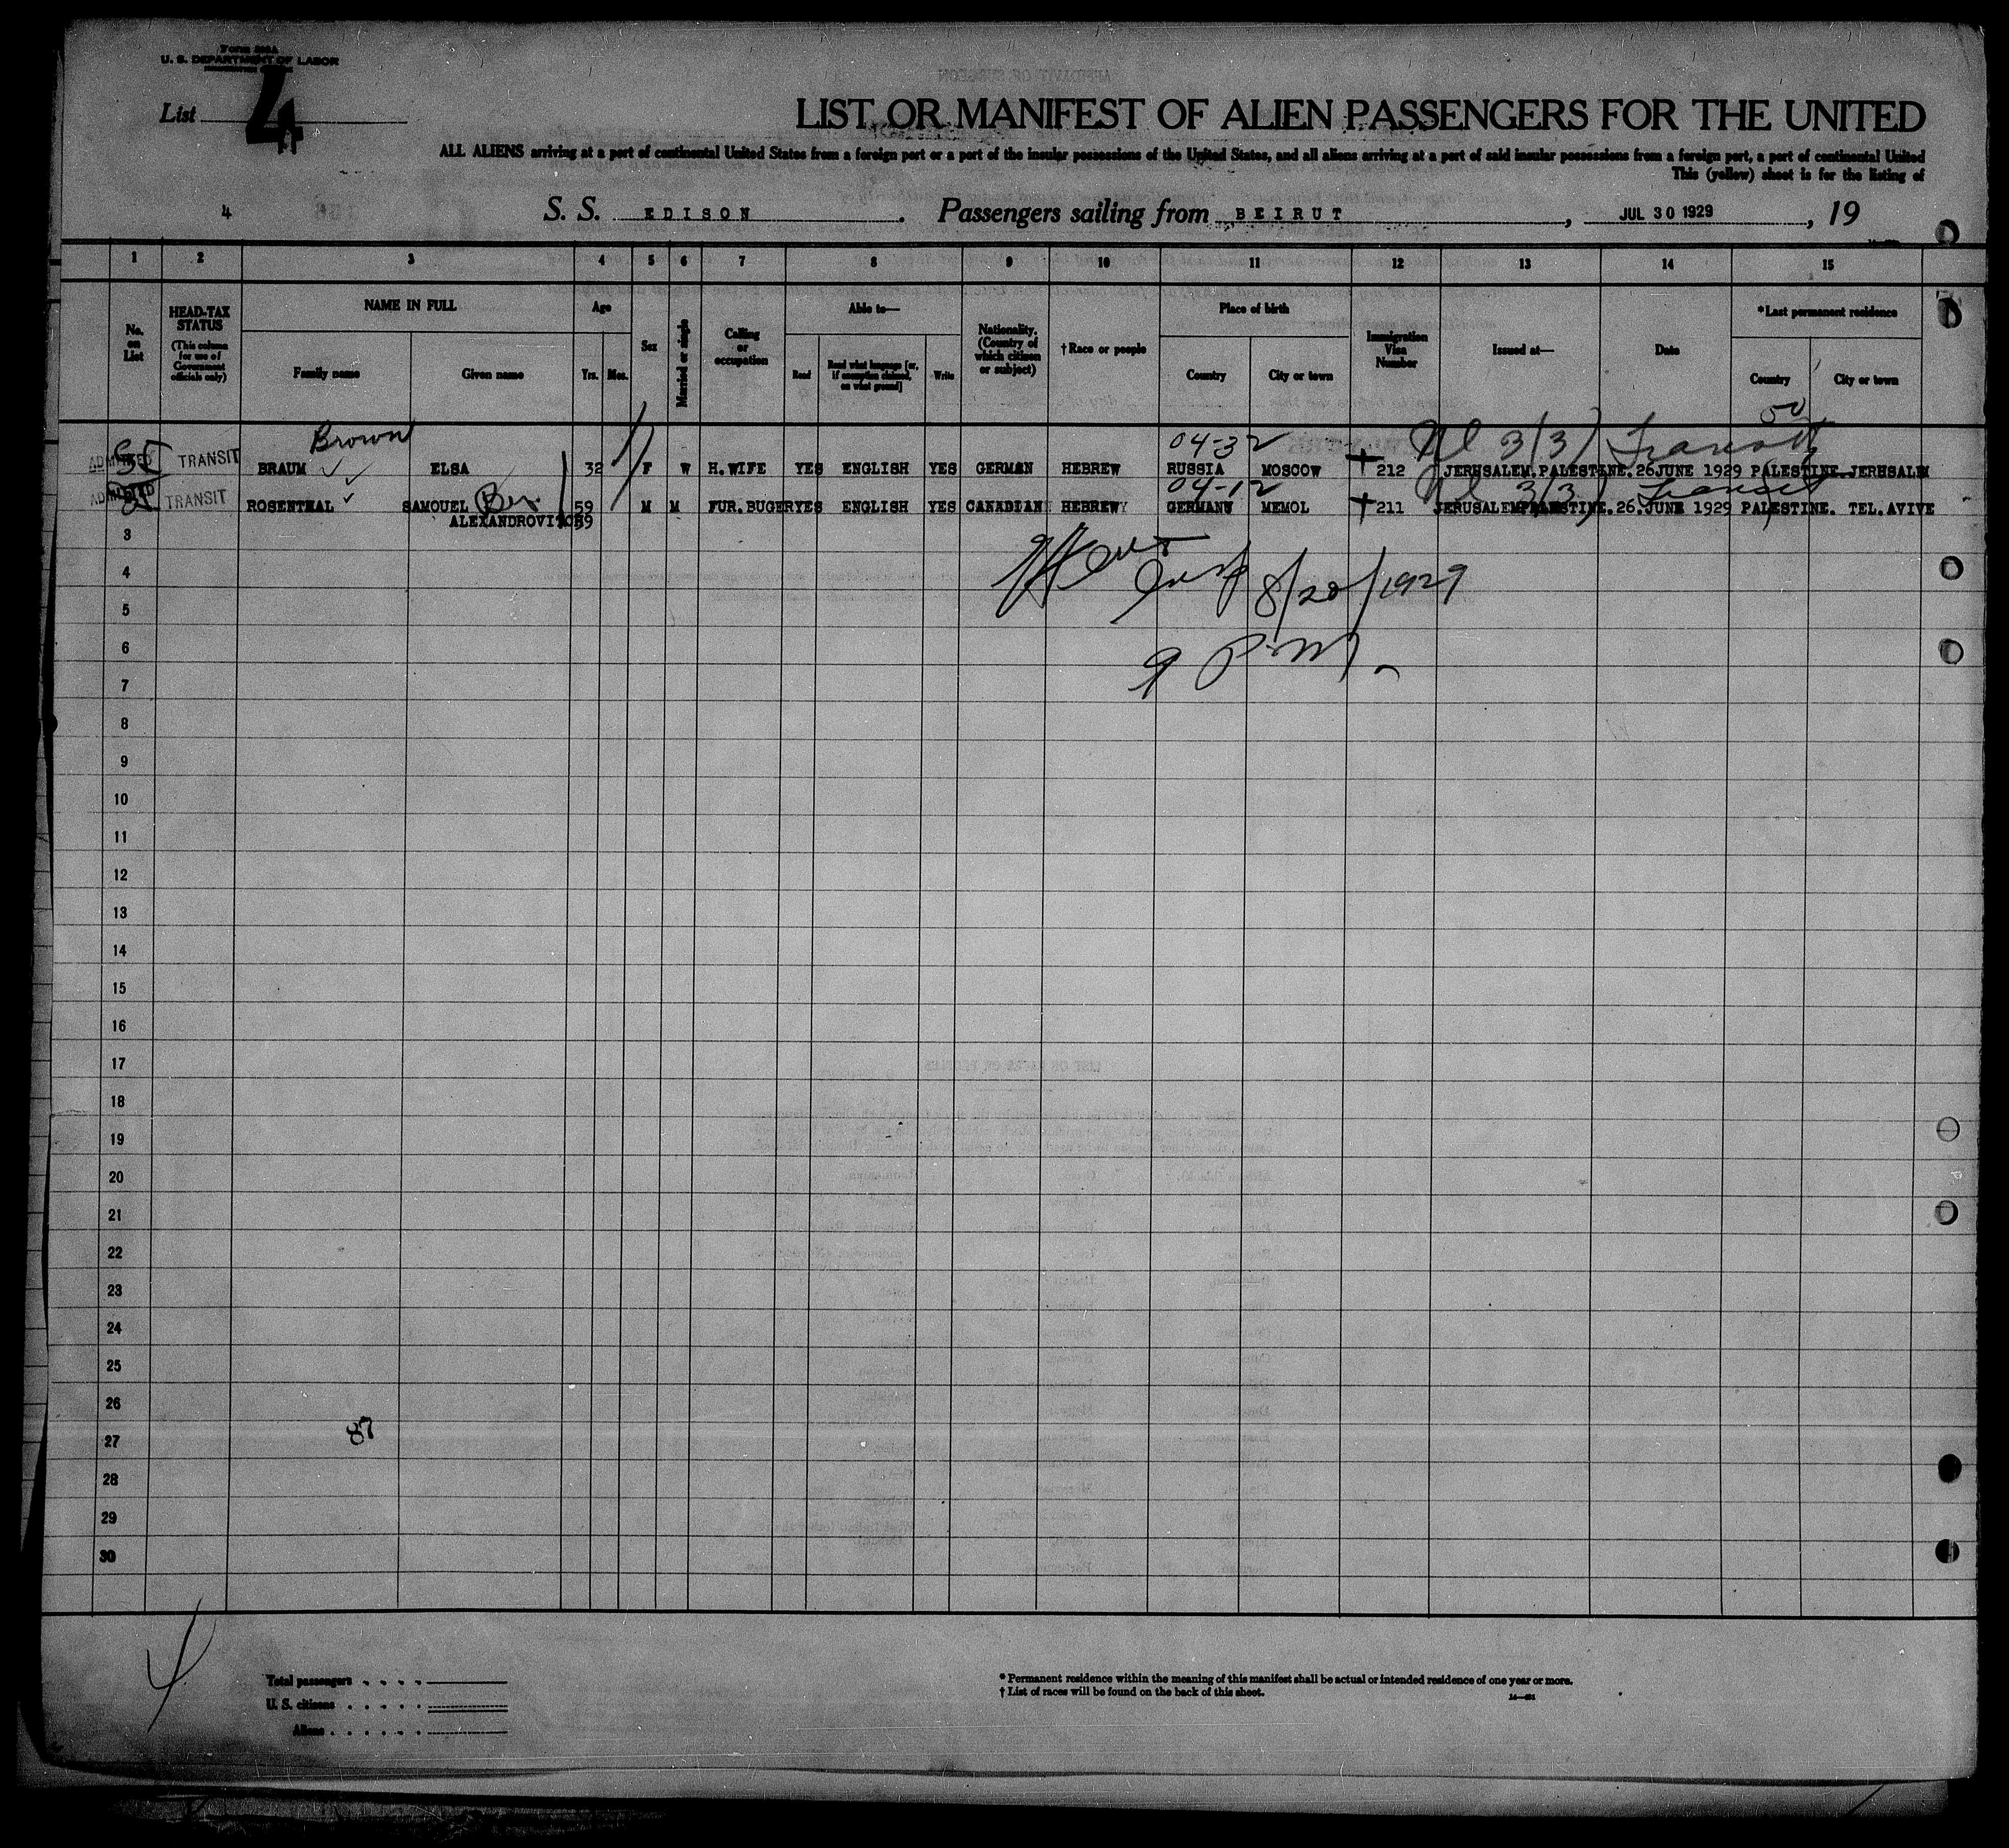 U. S. DEPARTMENT OF LABOR
List 4
LIST OR MANIFEST OF ALIEN PASSENGERS FOR THE UNITED
ALL ALIENS arriving at a port of continental United States from a foreign port or a port of the insular possessions of the United States, and all aliens arriving at a port of said insular possessions from a foreign port, a port of continental United
This (yellow) sheet is for the listing of
4 S. S. EDISON. Passengers sailing from BEIRUT, JUL 30 1929, 19
1 2 3 4 5 6 7 8 9 10 11 12 13 14 15
No. on List
HEAD-TAX STATUS (This column for use of Government officials only)
NAME IN FULL
Family name Given name
Age
Yrs. Mos.
Sex
Married or single
Calling or occupation
Able to—
Read Read what language [or, if exemption claimed, on what ground] Write
Nationality. (Country of which citizen or subject)
†Race or people
Place of birth
Country City or town
Immigration Visa Number
Issued at—
Date
*Last permanent residence
Country City or town
Brown 04-32 3(3) Transit
ADMITTED TRANSIT BRAUM ELSA 32 F W H. WIFE YES ENGLISH YES GERMAN HEBREW RUSSIA MOSCOW 212 JERHSALEM.PALESTINE.26JUNE 1929 PALESTINE JERHSALEM
04-12 3(3) Transit
ADMITTED TRANSIT ROSENTHAL SAMOUEL 59 M M FUR. BUGER YES ENGLISH YES CANADIAN HEBREW GERMANY MEMOL 211 JERUSALEM PALESTINE. 26.JUNE 1929 PALESTINE. TEL.AVIVE
ALEXANDROVITCH 59
3
4
8/20/1929
5
6
9 P.M.
7
8
9
10
11
12
13
14
15
16
17
18
19
20
21
22
23
24
25
26
27 87
28
29
30
Total passengers
U. S. citizens
Aliens
* Permanent residence within the meaning of this manifest shall be actual or intended residence of one year or more.
† List of races will be found on the back of this sheet.